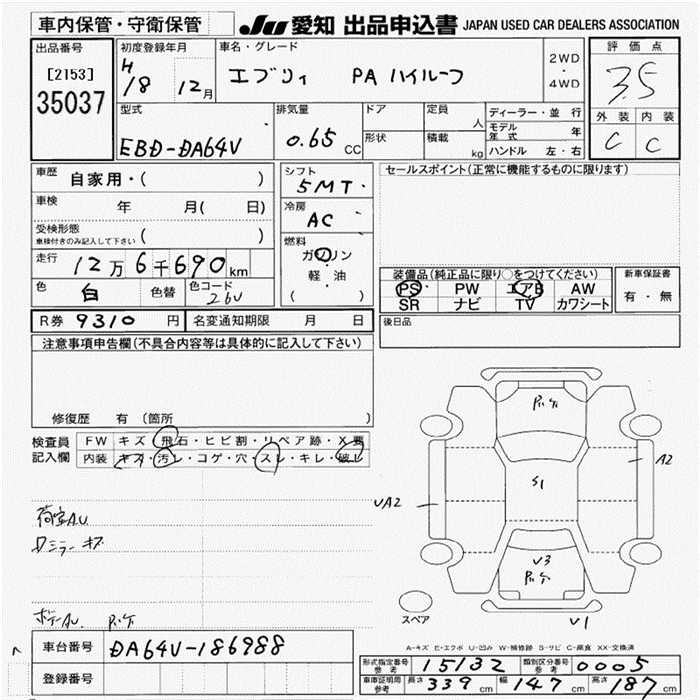 車内保管・守衛保管
JU 愛知 出品申込書 JAPAN USED CAR DEALERS ASSOCIATION
出品番号
[2153]
35037
初度登録年月
H18 12月
車名・グレード
エブリィ PA ハイルーフ
2WD
・
4WD
評価点
3.5
外装 内装
C C
型式
EBD-DA64V
排気量
0.65 CC
ドア
形状
定員 人
積載 kg
ディーラー・並行
モデル年式 年
ハンドル 左・右
車歴 自家用・( )
車検 年 月( 日)
受検形態
車検付きのみ記入して下さい ( )
走行 12万6千690km
色 白 色替 色コード 26U
シフト
5MT
冷房
AC
燃料
ガソリン
・
軽・油
( )
セールスポイント(正常に機能するものに限ります)
装備品(純正品に限り○をつけてください)
PS PW エアB AW
SR ナビ TV カワシート
新車保証書
有・無
R券 9310 円 名変通知期限 月 日
後日品
注意事項申告欄(不具合内容等は具体的に記入して下さい)
修復歴 有 (箇所 )
検査員記入欄
FW キズ・飛石・ヒビ割・リペア跡・X要
内装 キズ・汚レ・コゲ・穴・スレ・キレ・破レ
荷室A.U.
Dミラーキズ
ボデーAU. Pハケ
Pハケ
S1
A2
UA2
V3
Pハケ
V1
スペア
車台番号 DA64V-186988
登録番号
A-キズ E-エクボ U-凹み W-補修跡 S-サビ C-腐食 XX-交換済
形式指定番号 参考 15132 類別区分番号 参考 0005
車庫証明用 参考 長さ 339cm 幅 147cm 高さ 187cm